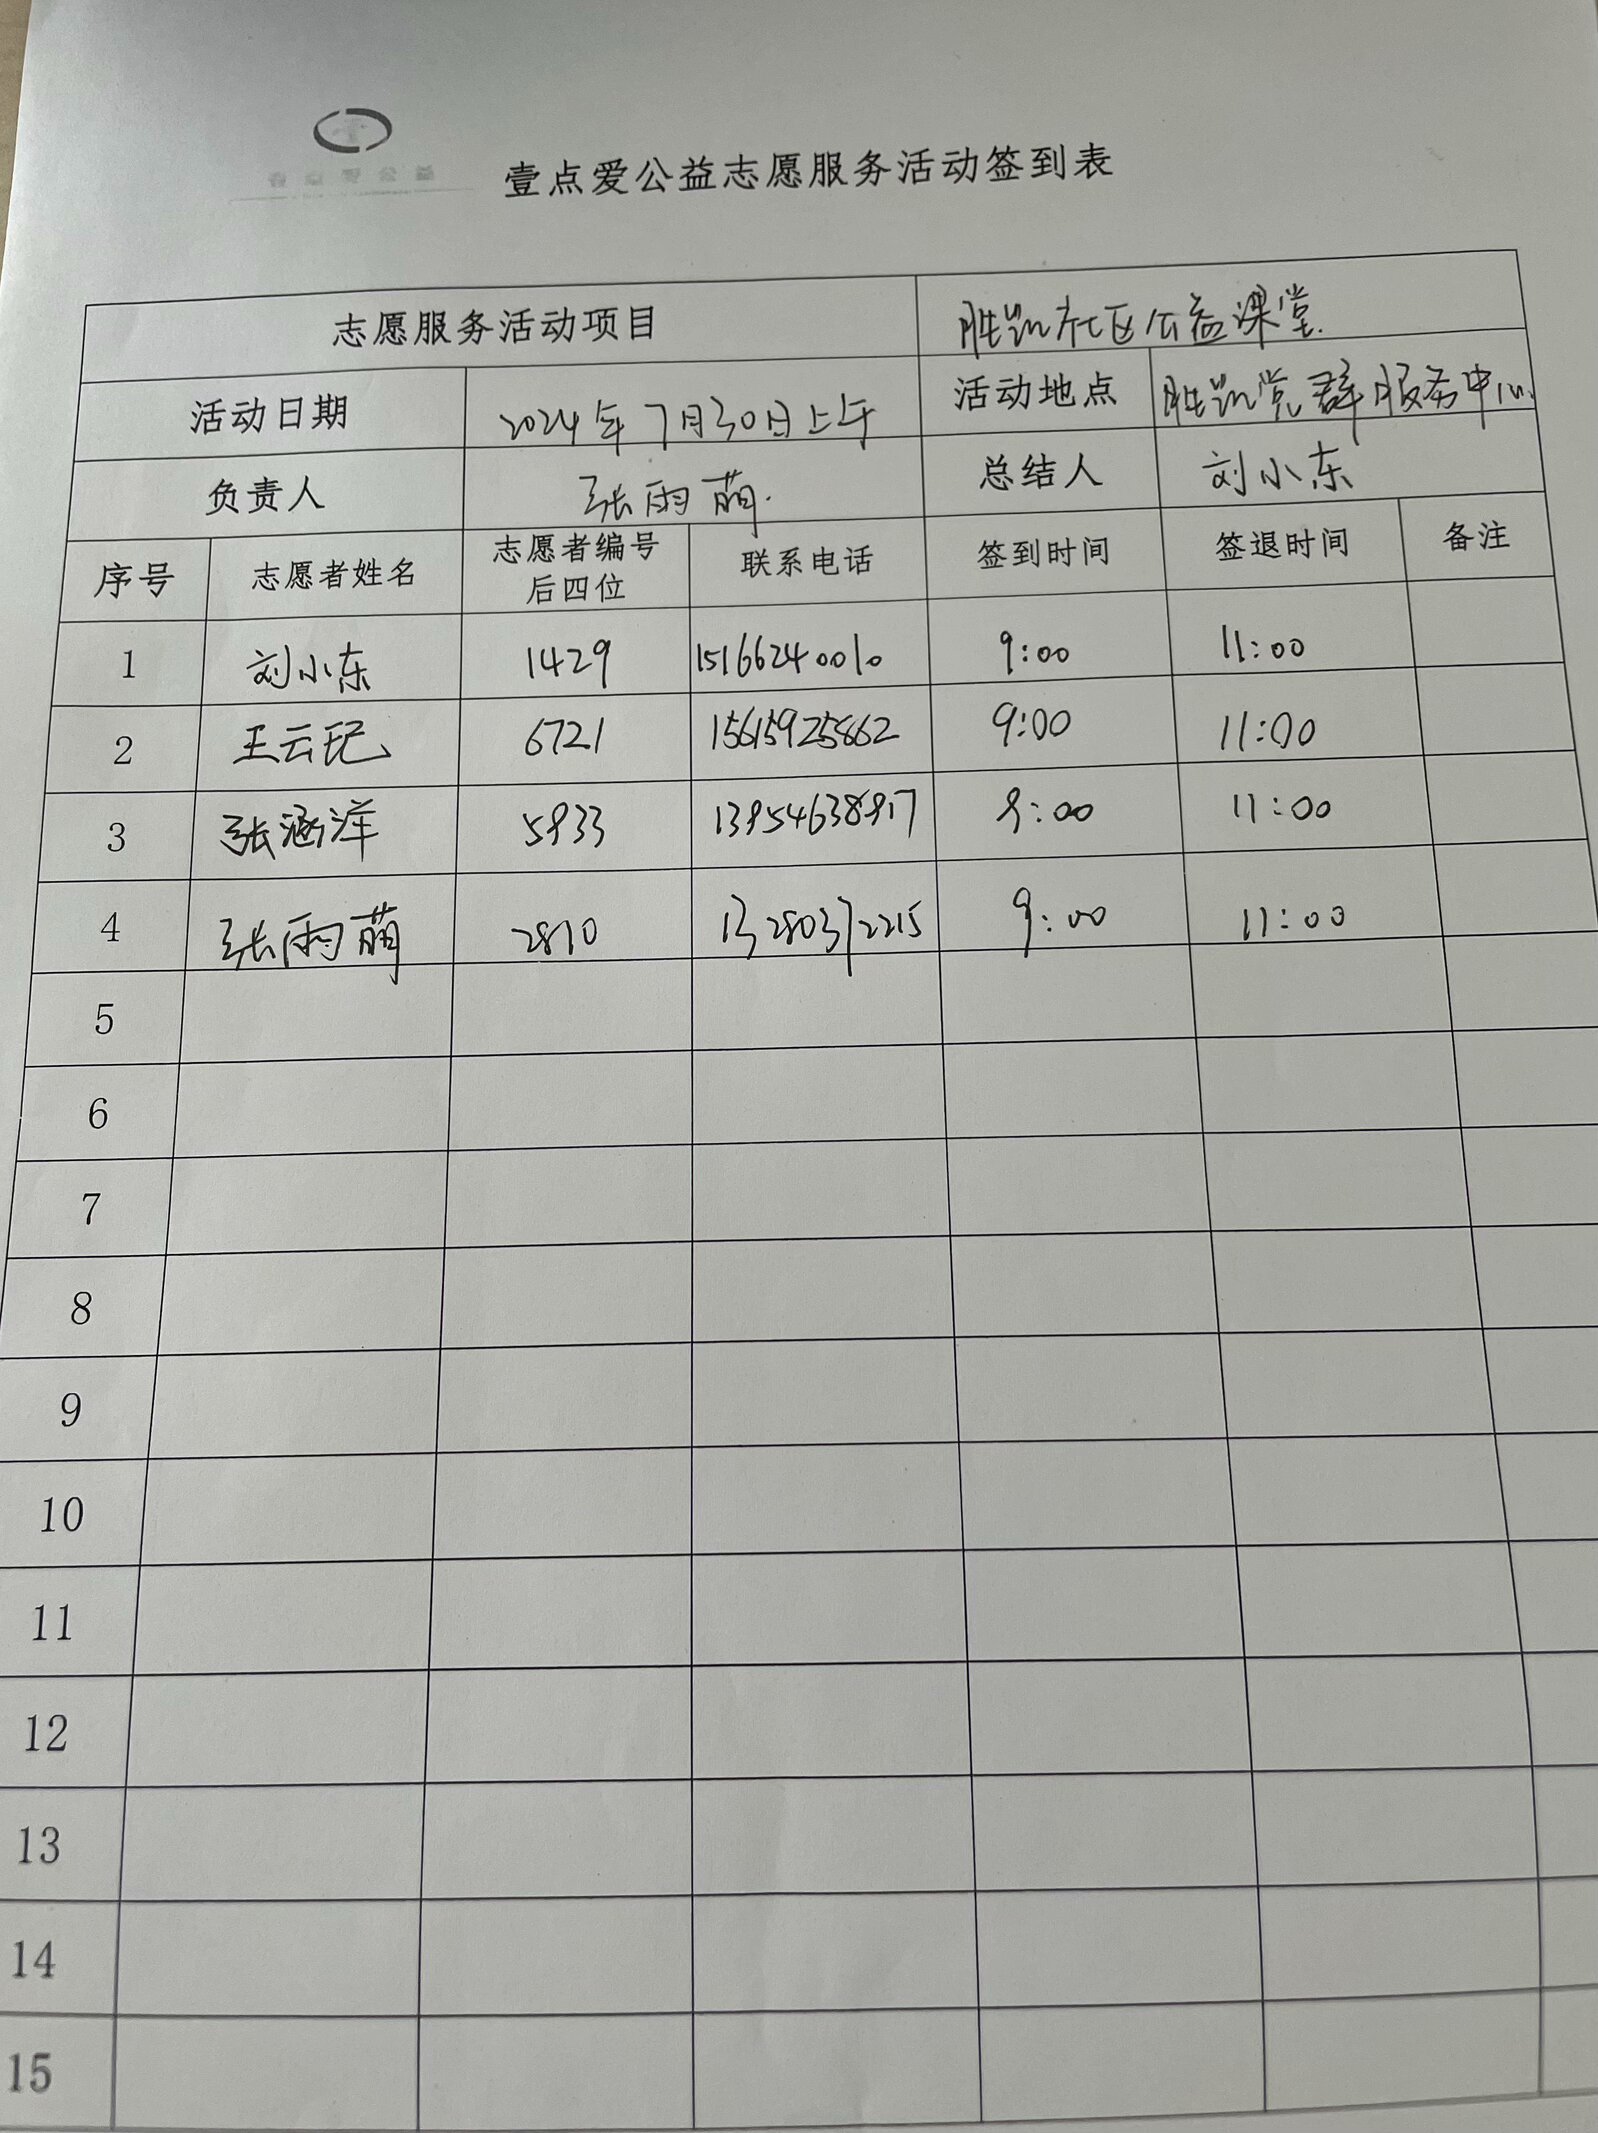 壹点爱公益志愿服务活动签到表
志愿服务活动项目 胜凯社区公益课堂.
活动日期 2024年7月30日上午 活动地点 胜凯党群服务中心.
负责人 张雨萌. 总结人 刘小东
序号 志愿者姓名 志愿者编号后四位 联系电话 签到时间 签退时间 备注
1 刘小东 1429 15166240010 9:00 11:00
2 王云 6721 15615925862 9:00 11:00
3 张涵洋 5833 9:00 11:00
4 张雨萌 2810 13280372215 9:00 11:00
5
6
7
8
9
10
11
12
13
14
15